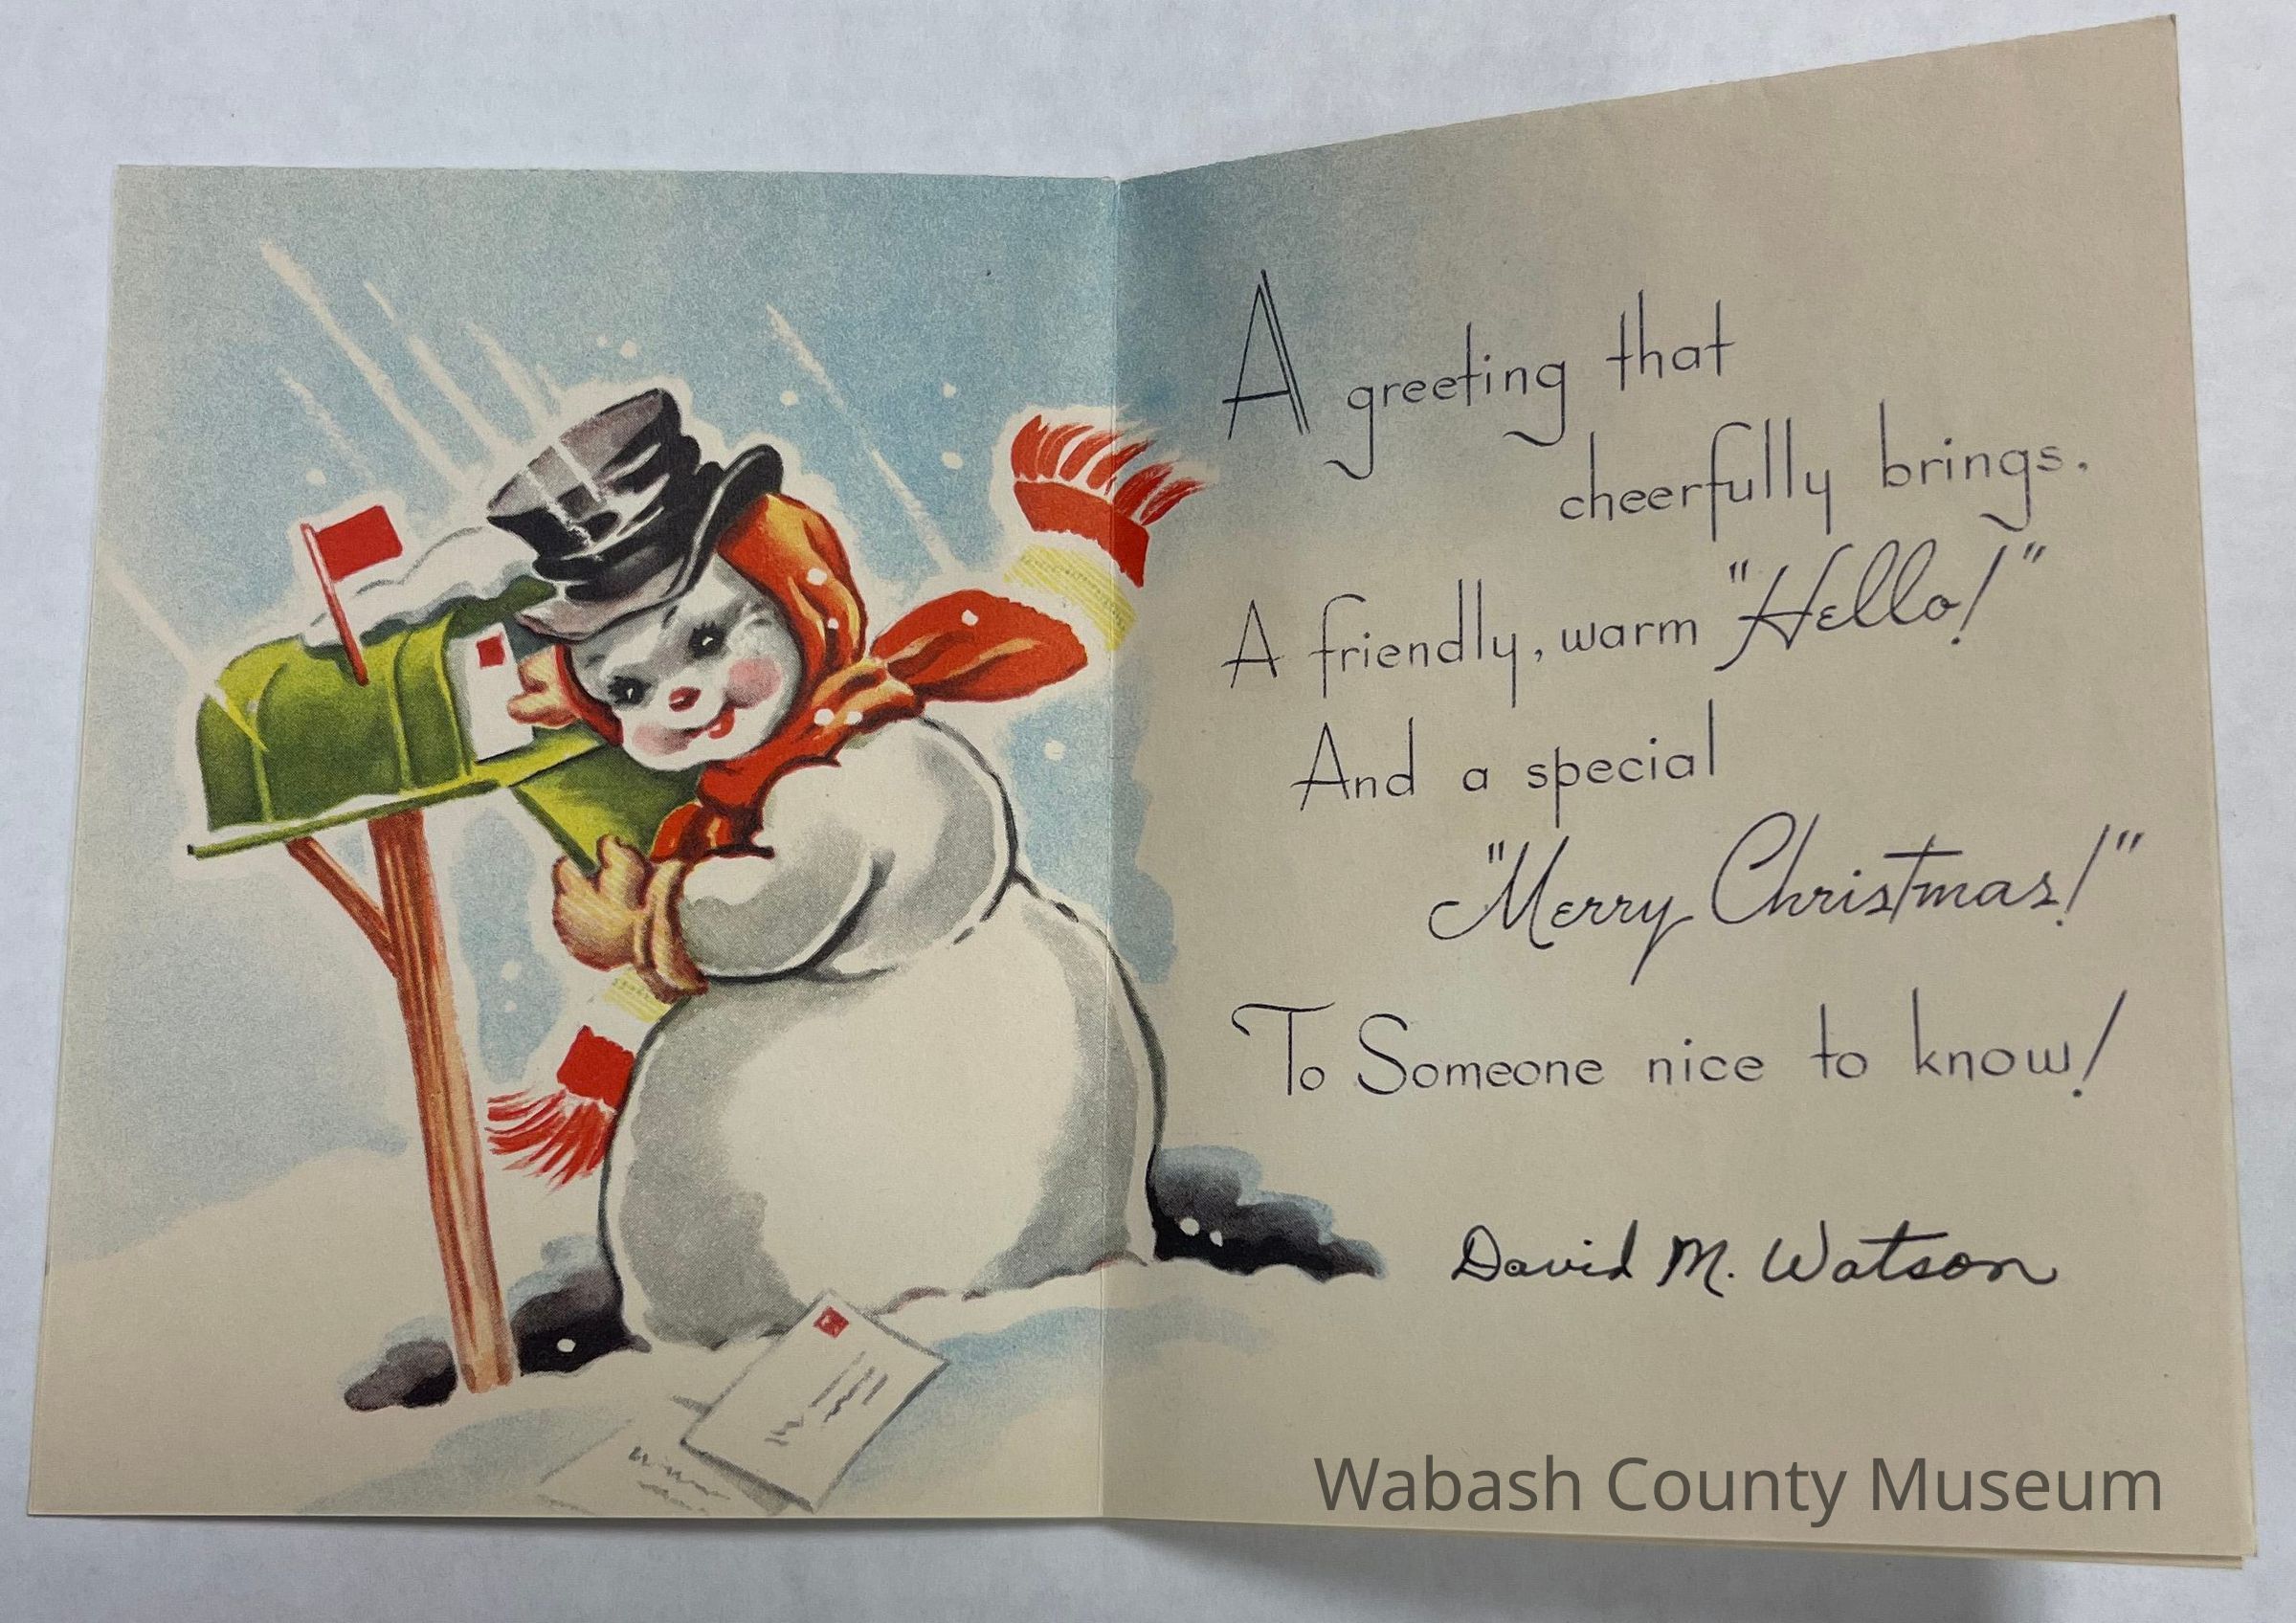 A greeting that
cheerfully brings.
A friendly, warm "Hello!"
And a special
"Merry Christmas!"
To Someone nice to know!
David M. Watson
Wabash County Museum